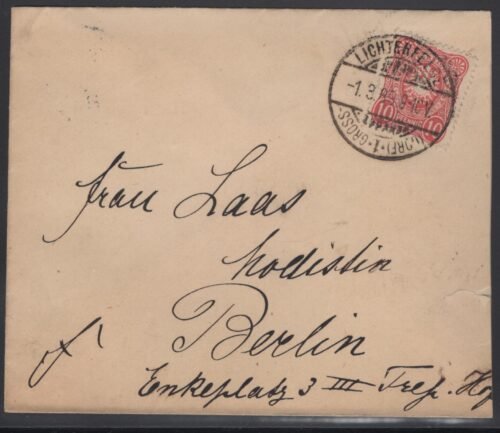 LICHTERFELDE
-1.3.
(DORF) * 1 * GROSS-
10 10
Frau Laas
Modistin
Berlin
Enkeplatz 3 III Trep. Hof